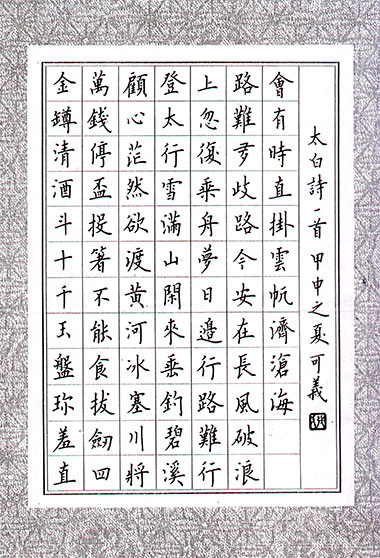 金罇清酒斗十千玉盤珍羞直
萬錢停盃投箸不能食拔劍四
顧心茫然欲渡黃河冰塞川將
登太行雪滿山閑來垂釣碧溪
上忽復乘舟夢日邊行路難行
路難多歧路今安在長風破浪
會有時直掛雲帆濟滄海
太白詩一首 甲申之夏可義